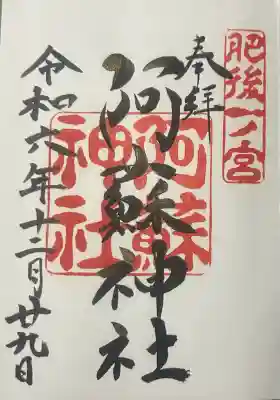 肥後一ノ宮
奉拝
阿蘇神社
阿蘇
神社
令和六年十二月廿九日